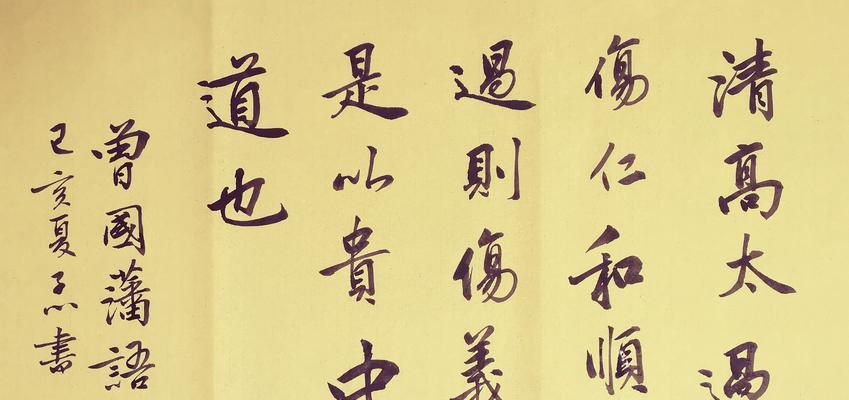 清高太過
傷仁和順
過則傷義
是以貴中
道也
曾國藩語
己亥夏 書